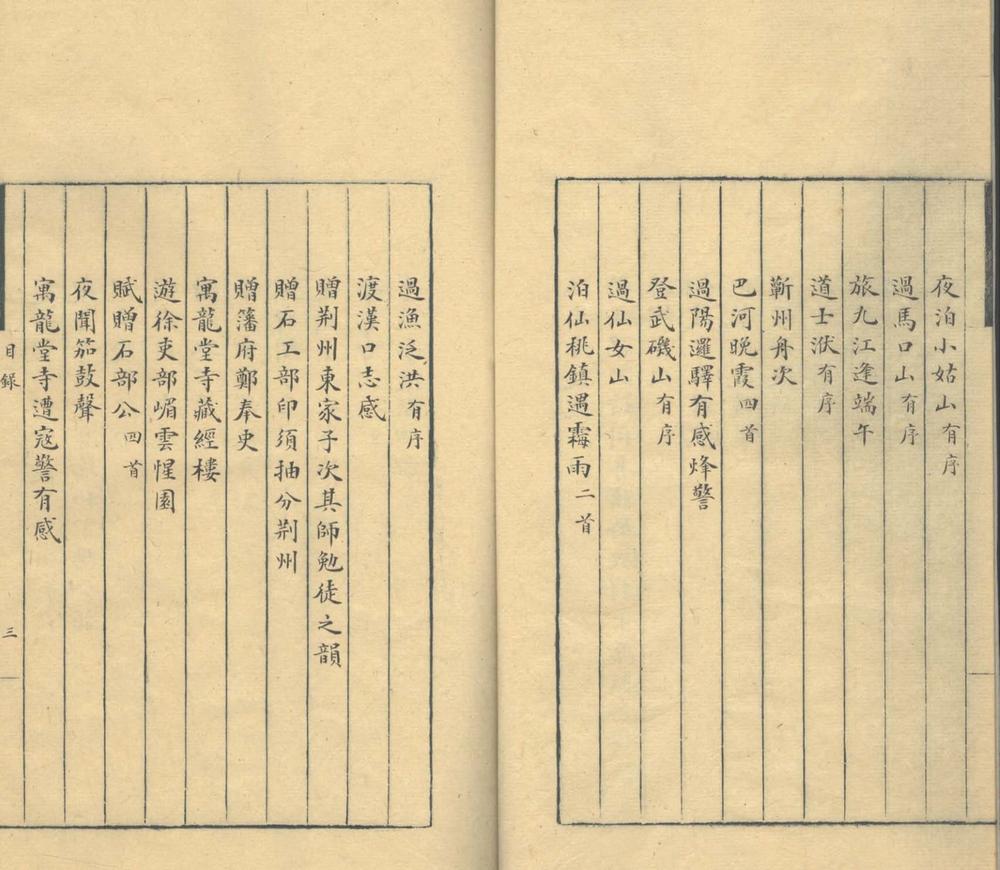 夜泊小姑山有序
過馬口山有序
旅九江逢端午
道士洑有序
蘄州舟次
巴河晚霞四首
過陽邏驛有感烽警
登武磯山有序
過仙女山
泊仙桃鎮遇霧雨二首
過漁泛洪有序
渡漢口志感
贈荆州東家子次其師勉徒之韻
贈石工部印須抽分荆州
贈藩府鄭奉吏
寓龍堂寺藏經樓
遊徐吏部嵋雲惺園
賦贈石部公四首
夜聞笳鼓聲
寓龍堂寺遭寇警有感
目録
三